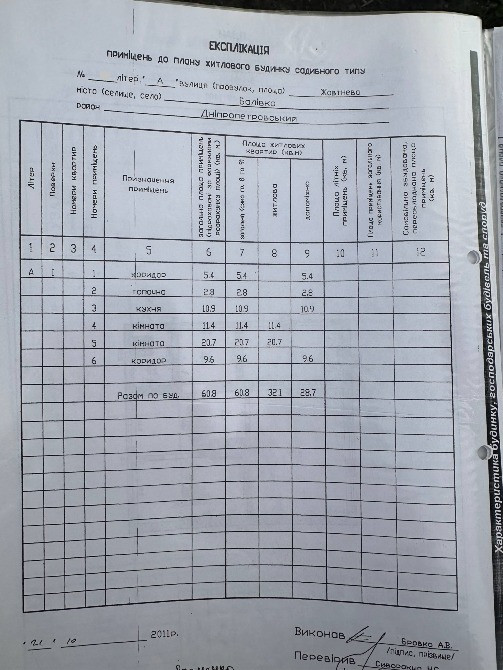 ЕКСПЛІКАЦІЯ
ПРИМІЩЕНЬ ДО ПЛАНУ ЖИТЛОВОГО БУДИНКУ САДИБНОГО ТИПУ
№ ____ літер." А "вулиця (провулок, площа) Жовтнева
місто (селище, село) Балівка
район Дніпропетровський
Літер Поверхи Номери квартир Номери приміщень Призначення приміщень Загальна площа приміщень Площа житлових квартир (кв.м) житлова допоміжна Площа літніх приміщень (кв. м) Площа приміщень загального користування (кв. м)
1 2 3 4 5 6 7 8 9 10 11 12
А І 1 коридор 5.4 5.4 5.4
2 топочна 2.8 2.8 2.8
3 кухня 10.9 10.9 10.9
4 кімната 11.4 11.4 11.4
5 кімната 20.7 20.7 20.7
6 коридор 9.6 9.6 9.6
Разом по буд. 60.8 60.8 32.1 28.7
21 10 2011р.
Виконав Бровко А.В.
/підпис, прізвище/
Перевірив
Характеристика будинку, господарських будівель та споруд